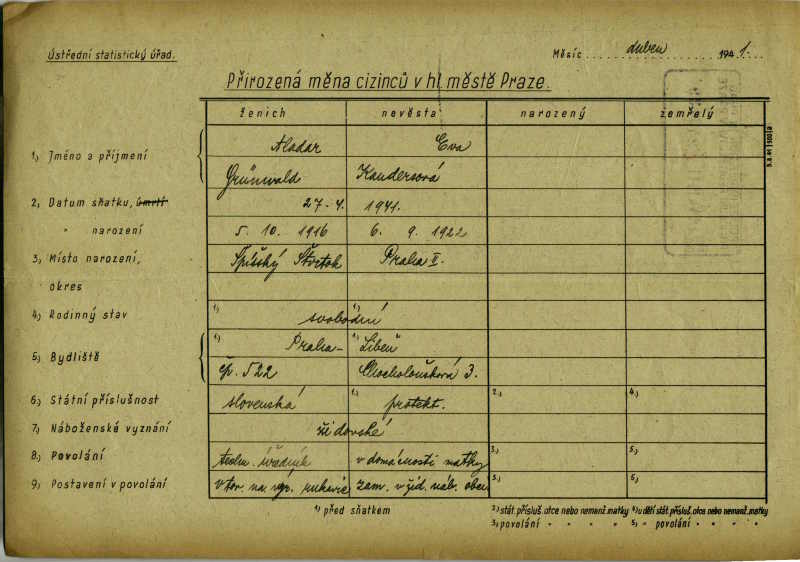 Ústřední statistický úřad.
Měsíc duben 1941.
Přirozená měna cizinců v hl. městě Praze.
ženich nevěsta narozený zemřelý
1.) Jméno a příjmení Aladar Eva
Grünwald Kandersová
2.) Datum sňatku, úmrtí 27.4. 1941.
" narození 5. 10. 1916 6. 9. 1922
3.) Místo narození, Spišský Štvrtok Praha II.
okres
4.) Rodinný stav 1) svobodní 1)
5.) Bydliště 1) Praha- 1) Libeň
čp. 522 Chocholoušková 3.
6.) Státní příslušnost slovenská 1.) protekt. 2.) 4.)
7.) Náboženské vyznání židovské
8.) Povolání techn. úředník v domácnosti matky 3.) 5.)
9.) Postavení v povolání v tov. na výr. rukavic zam. v žid. náb. obci 3.) 5.)
1) před sňatkem 2) stát. přísluš. otce nebo nemanž. matky 4) u dětí stát. přísluš. otce nebo nemanž. matky
3) povolání " " " " 5) " povolání " " " "